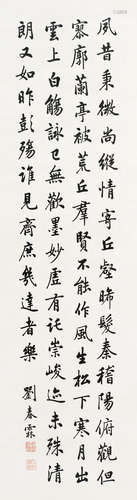 夙昔秉微尚縱情寄丘壑晞髮秦稽陽俯觀但
寥廓蘭亭被荒丘羣賢不能作風生松下寒月出
雲上白觴詠已無歡墨妙虛有託崇峻迹未殊清
朗又如昨彭殤誰見齊庶幾達者樂
劉春霖